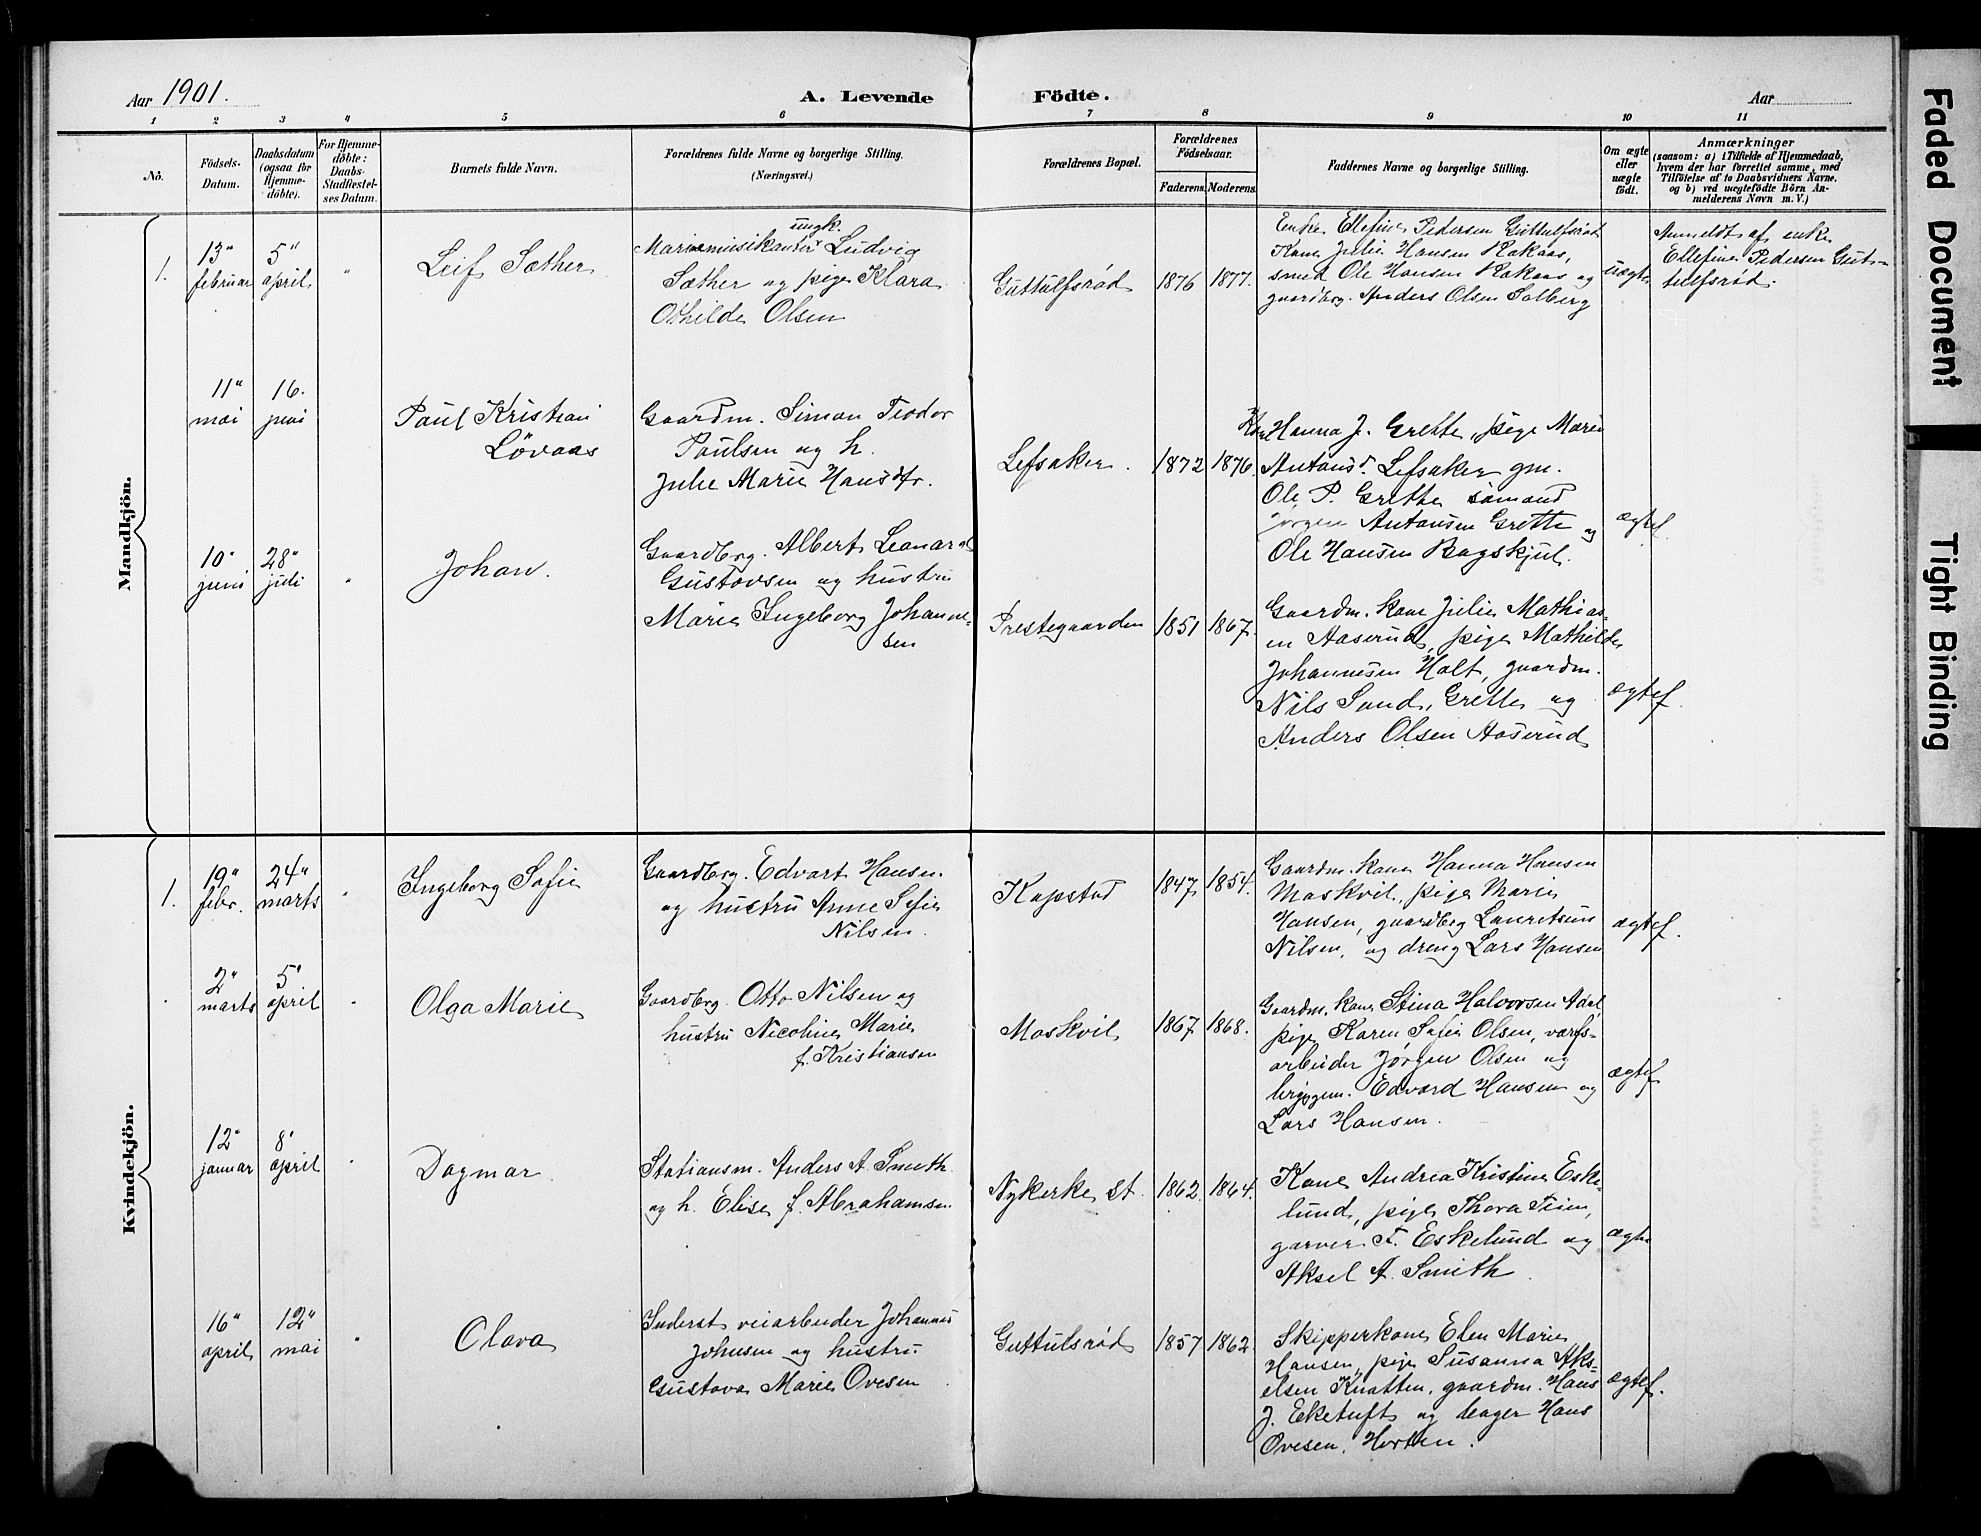 Aar 1901.
A. Levende Födte.
Aar
1 2 3 4 5 6 7 8 9 10 11
No.
Födsels-
Datum.
Daabsdatum
(ogsaa for
Hjemme-
döbte).
For Hjemme-
döbte:
Daabs-
Stadfæstel-
ses Datum.
Barnets fulde Navn.
Forældrenes fulde Navne og borgerlige Stilling.
(Næringsvei.)
Forældrenes Bopæl.
Forældrenes
Födselsaar.
Faderens. Moderens.
Faddernes Navne og borgerlige Stilling.
Om ægte
eller
uægte
födt.
Anmærkninger
(saasom: a) i Tilfælde af Hjemmedaab,
hvem der har forrettet samme, med
Tilföielse af to Daabsvidners Navne.
og b) ved uægtefödte Börn An-
melderens Navn m. V.)
Mandkjön.
1. 13" februar
5" april
"
Leif Sæther
ungk.
Marinemusikanter Ludvig
Sæther og pige Klara
Othilde Olsen
Guttulfsrød
1876 1877.
Enke Ellefine Pedersen Guttulfsrød
Kone Julie Hansen Rakaas,
smed Ole Hansen Rakaas og
gaardbrg. Anders Olsen Solberg
uægte
Anmeldt af enke
Ellefine Pedersen Gut-
tulfsrød.
11" mai
16. juni
Paul Kristian
Løvaas
Gaardm. Simon Teodor
Paulsen og h.
Julie Marie Hansdtr.
Lefsaker.
1872 1876.
Hanna J. Grette, pige Marie
Antonsd. Lefsaker gm.
Ole P. Grette sømand
Jørgen Antonsen Grette og
Ole Hansen Bagskjul.
ægtef.
10" juni
28" juli
"
Johan.
Gaardbrg. Albert Leonard
Gustavsen og hustru
Marie Ingeborg Johanne-
sen
Prestegaarden
1851 1867.
Gaardm. kone Julie Mathias-
en Aaserud, pige Mathilde
Johannesen Holt, gaardm.
Nils Sand, Grette og
Anders Olsen Aaserud
ægtef.
Kvindekjön.
1. 19" febr.
24" marts
"
Ingeborg Sofie
Gaardbrg. Edvart Hansen
og hustru Anne Sofie
Nilsen.
Kapstad
1847. 1854.
Gaardm. kone Hanna Hansen
Moskvil, pige Marie
Hansen, gaardbrg Lauritsius
Nilsen, og dreng Lars Hansen
ægtef.
2" marts
5" april
"
Olga Marie
Gaardbrg. Otto Nilsen og
hustru Nicoline Marie
f. Kristiansen
Moskvil
1867. 1868.
Gaardm. kone Stina Halvorsen Adal,
pige Karen Sofie Olsen, værfs-
arbeider Jørgen Olsen og
Edvard Hansen og
Lars Hansen.
ægtef
12" januar
8" april
"
Dagmar.
Stationsm. Anders A. Smith
og h. Elise f. Abrahamsen
Nykirke st.
1862. 1864.
Kone Andrea Kristine Eske-
lund, pige Thora Teien,
garver T. Eskelund og
Aksel A. Smith.
ægte
16" april
12" mai
"
Olava
Inderst veiarbeider Johannes
Johnsen og hustru
Gustava Marie Ovesen
Guttulsrød
1857 1862.
Skipperkone Elen Marie
Hansen, pige Susanna Aks-
elsen Knatten, gaardm. Hans
J. Eketuft og bager Hans
Ovesen, Horten.
ægtef.
Faded Document
Tight Binding